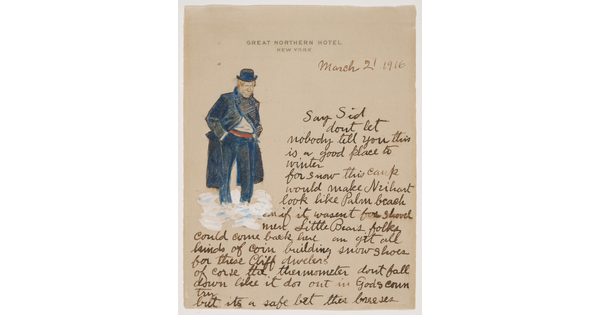 GREAT NORTHERN HOTEL
NEW YORK
March 21 1916
Say Sid
dont let
nobody tell you this
is a good place to
winter
for snow this camp
would make Neihart
look like Palm beach
an if it wasent for shovel
men Little Bears folks
could come back here an get all
kinds of coin building snow shoes
for these Cliff dwelers
of corse the thermometer dont fall
down like it dos out in Gods coun
try
but its a safe bet this breeses